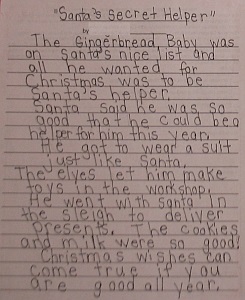 "Santa's Secret Helper"
by
The Gingerbread Baby was
on Santa's nice list and
all he wanted for
Christmas was to be
Santa's helper.
Santa said he was so
good that he could be a
helper for him this year.
He got to wear a suit
just like Santa.
The elves let him make
toys in the workshop.
He went with Santa in
the sleigh to deliver
presents. The cookies
and milk were so good!
Christmas wishes can
come true if you
are good all year.